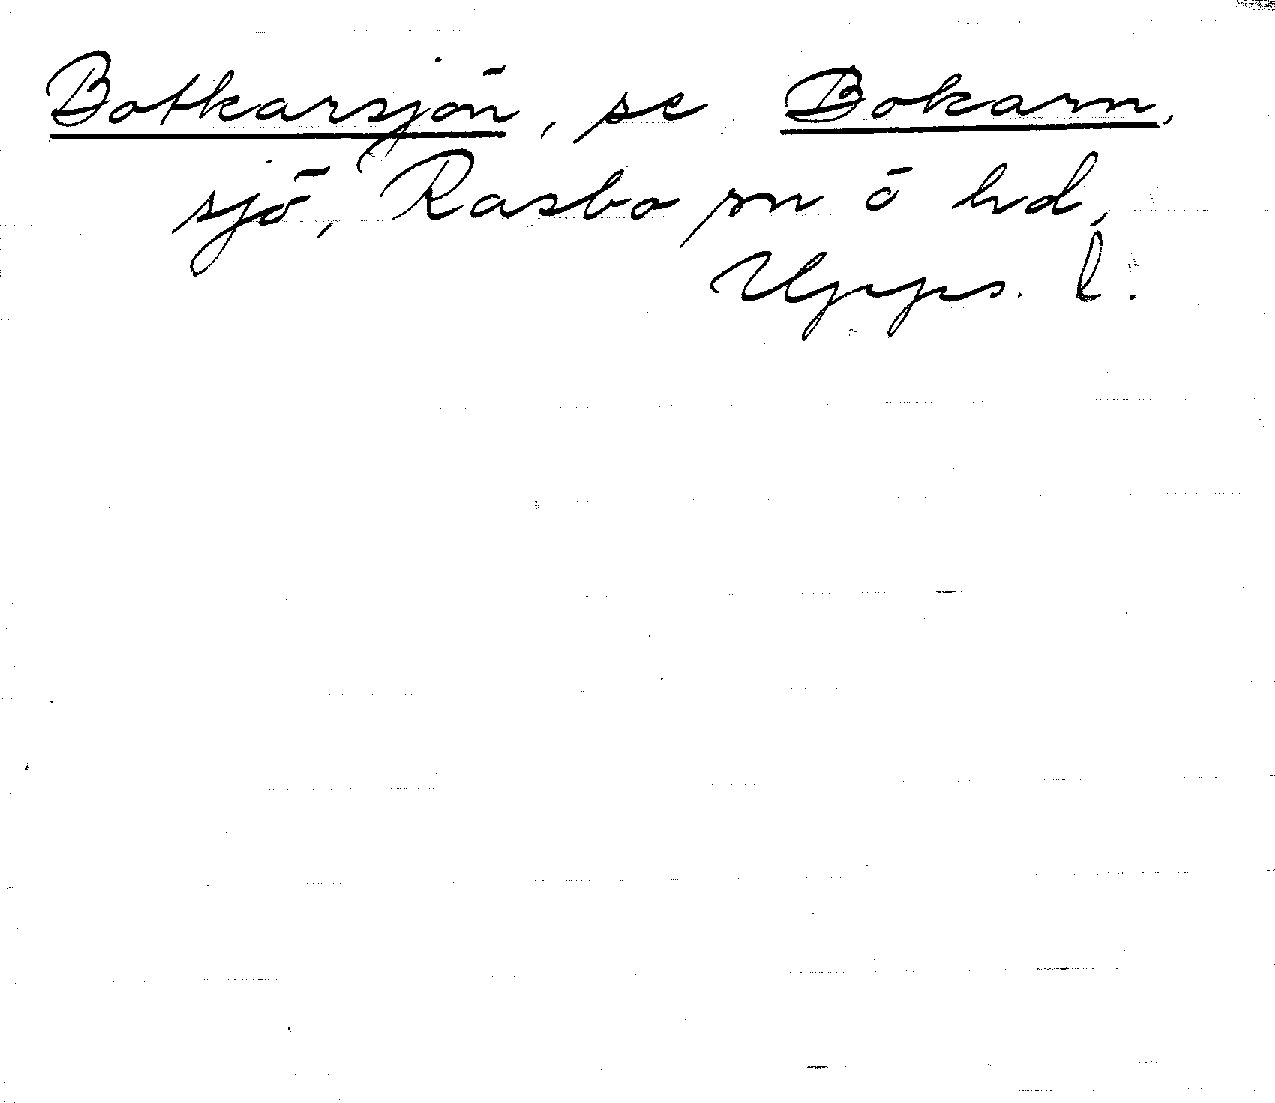 Botkarsjön, se Bokarn,
sjö, Rasbo sn o hd,
Upps. l.